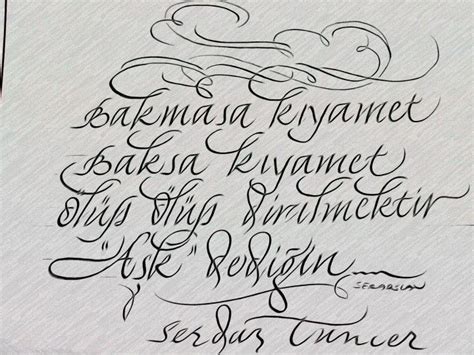 Bakmasa kıyamet
Baksa kıyamet
Ölüp Ölüp dirilmektir
"Aşk" dediğin....
SERARSLAN
Serdar Tuncer